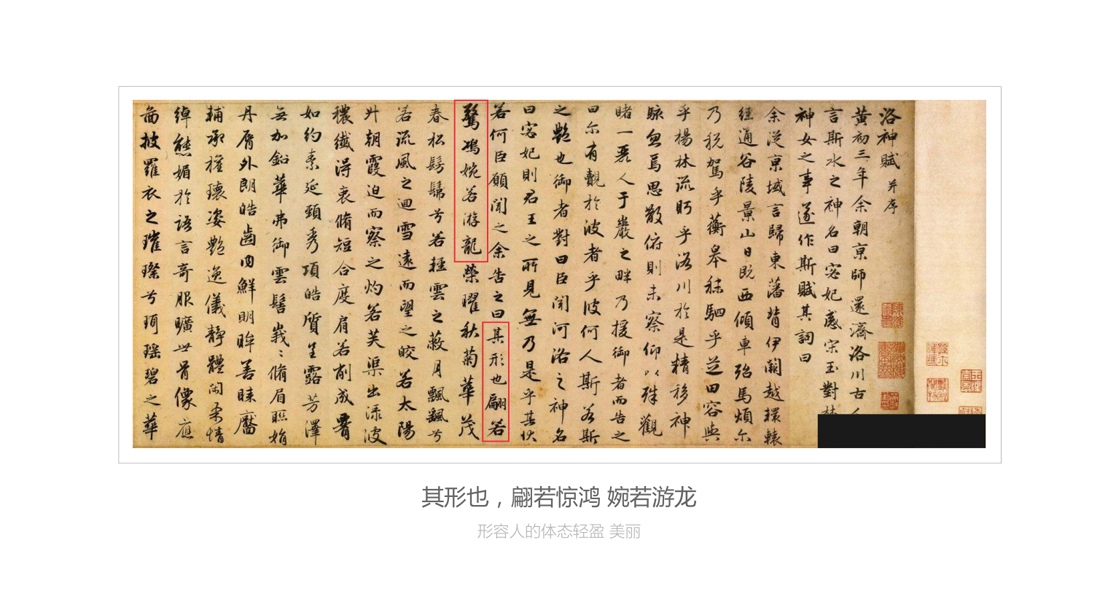 洛神賦 并序
黄初三年余朝京師還濟洛川古
言斯水之神名曰宓妃感宋玉對
神女之事遂作斯賦其詞曰
余從京域言歸東藩背伊闕越轘轅
經通谷陵景山日既西傾車殆馬煩尔
乃税駕乎蘅皋秣駟乎芝田容與
乎楊林流眄乎洛川於是精移神
駭忽焉思散俯則未察仰以殊觀
睹一麗人于巖之畔乃援御者而告之
曰尔有覿於彼者乎彼何人斯若斯
之艷也御者對曰臣聞河洛之神名
曰宓妃則君王之所見無乃是乎其狀
若何臣願聞之余告之曰其形也翩若
驚鴻婉若游龍榮曜秋菊華茂
春松髣髴兮若輕雲之蔽月飄飄兮
若流風之迴雪遠而望之皎若太陽
升朝霞迫而察之灼若芙渠出淥波
穠纖得衷脩短合度肩若削成腰
如約素延頸秀項皓質呈露芳澤
無加鉛華弗御雲髻峩〻脩眉聯娟
丹脣外朗皓齒内鮮明眸善睞靨
輔承權瓌姿艷逸儀靜體閑柔情
綽態媚於語言奇服曠世骨像應
啚披羅衣之璀璨兮珥瑶碧之華
其形也，翩若惊鸿 婉若游龙
形容人的体态轻盈 美丽